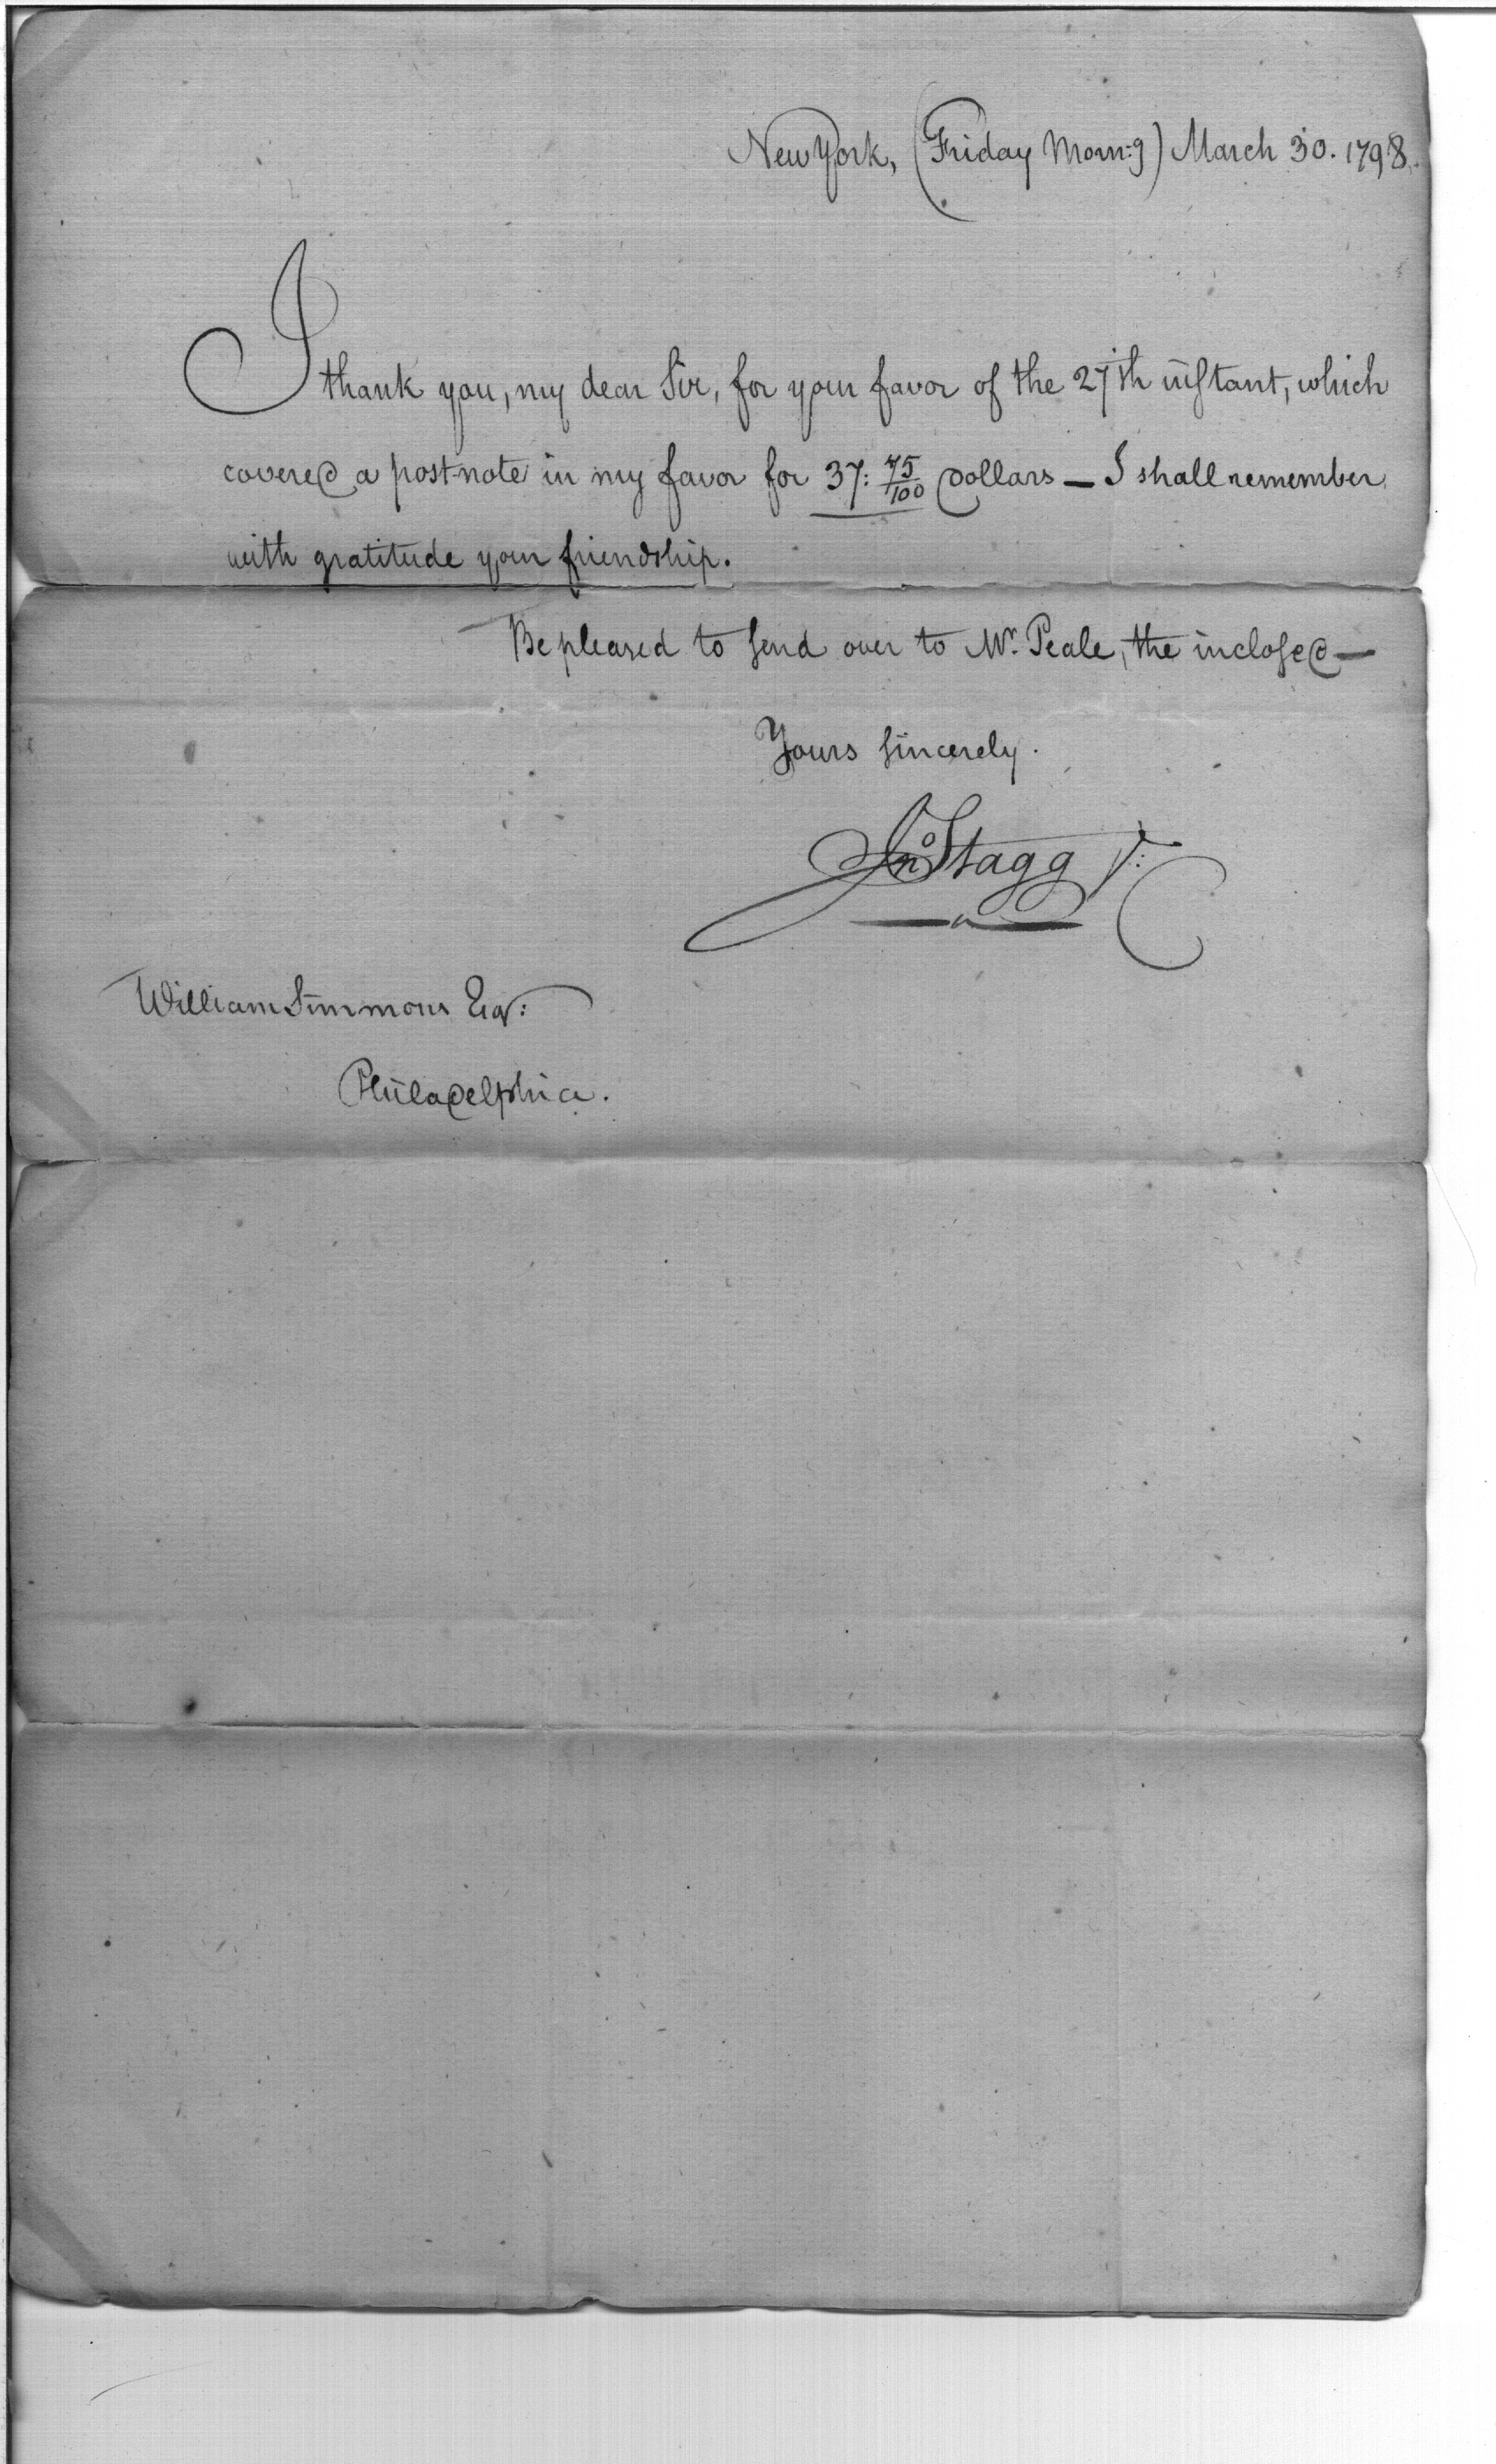 New York, (Friday Morn:g) March 30. 1798.
I thank you, my dear Sir, for your favor of the 27th instant, which
covered a post-note in my favor for 37: 75/100 dollars — I shall remember
with gratitude your friendship.
Be pleased to send over to Mr. Peale, the inclosed —
Yours sincerely.
Jno Stagg Jr:
William Simmons Esqr:
Philadelphia.